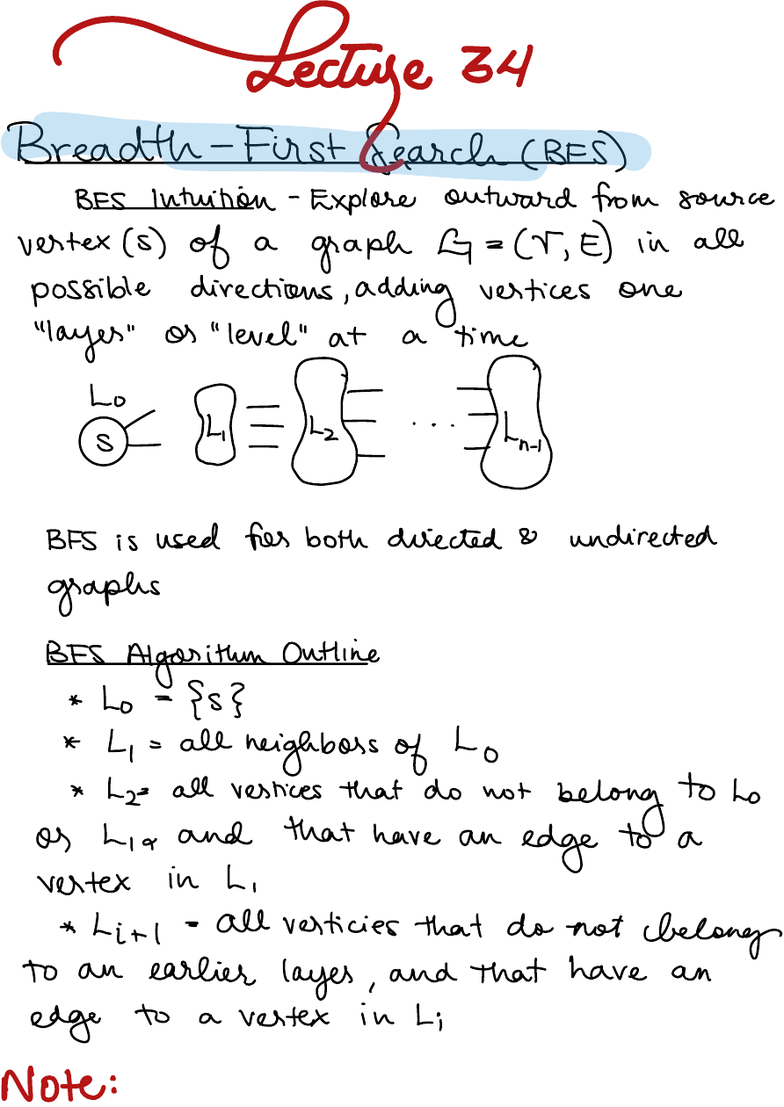 Lecture 34
Breadth-First Search (BFS)
BFS Intuition - Explore outward from source
vertex (s) of a graph G = (V, E) in all
possible directions, adding vertices one
"layer" or "level" at a time
L0
S L1 L2 ... Ln-1
BFS is used for both directed & undirected
graphs
BFS Algorithm Outline
* L0 = {s}
* L1 = all neighbors of L0
* L2 = all vertices that do not belong to L0
or L1, and that have an edge to a
vertex in L1
* Li+1 = all verticies that do not belong
to an earlier layer, and that have an
edge to a vertex in Li
Note: